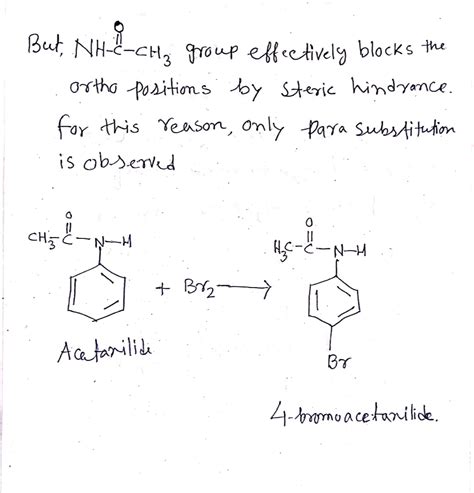 But, NH-C-CH3 group effectively blocks the
O
ortho positions by steric hindrance.
for this reason, only para substitution
is observed
O
CH3-C-N-H
+ Br2
Acetanilide
O
H3C-C-N-H
Br
4-bromoacetanilide.